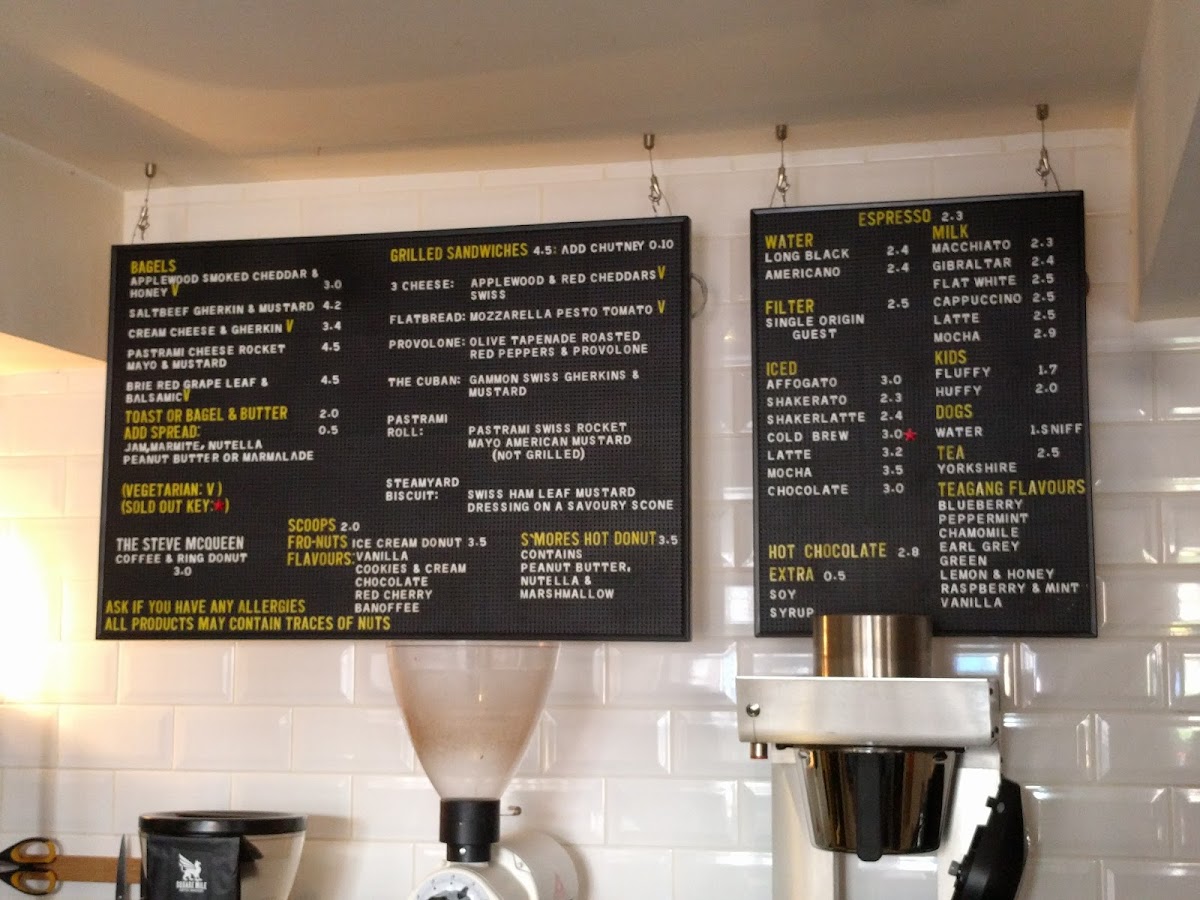 BAGELS
APPLEWOOD SMOKED CHEDDAR & HONEY V 3.0
SALTBEEF GHERKIN & MUSTARD 4.2
CREAM CHEESE & GHERKIN V 3.4
PASTRAMI CHEESE ROCKET 4.5
MAYO & MUSTARD
BRIE RED GRAPE LEAF & 4.5
BALSAMIC V
TOAST OR BAGEL & BUTTER 2.0
ADD SPREAD: 0.5
JAM,MARMITE, NUTELLA
PEANUT BUTTER OR MARMALADE
(VEGETARIAN: V )
(SOLD OUT KEY:★)
THE STEVE MCQUEEN
COFFEE & RING DONUT
3.0
GRILLED SANDWICHES 4.5: ADD CHUTNEY 0.10
3 CHEESE: APPLEWOOD & RED CHEDDARS V
SWISS
FLATBREAD: MOZZARELLA PESTO TOMATO V
PROVOLONE: OLIVE TAPENADE ROASTED
RED PEPPERS & PROVOLONE
THE CUBAN: GAMMON SWISS GHERKINS &
MUSTARD
PASTRAMI
ROLL: PASTRAMI SWISS ROCKET
MAYO AMERICAN MUSTARD
(NOT GRILLED)
STEAMYARD
BISCUIT: SWISS HAM LEAF MUSTARD
DRESSING ON A SAVOURY SCONE
SCOOPS 2.0
FRO-NUTS ICE CREAM DONUT 3.5
FLAVOURS: VANILLA
COOKIES & CREAM
CHOCOLATE
RED CHERRY
BANOFFEE
S'MORES HOT DONUT 3.5
CONTAINS
PEANUT BUTTER,
NUTELLA &
MARSHMALLOW
ASK IF YOU HAVE ANY ALLERGIES
ALL PRODUCTS MAY CONTAIN TRACES OF NUTS
ESPRESSO 2.3
WATER
LONG BLACK 2.4
AMERICANO 2.4
FILTER 2.5
SINGLE ORIGIN
GUEST
ICED
AFFOGATO 3.0
SHAKERATO 2.3
SHAKERLATTE 2.4
COLD BREW 3.0★
LATTE 3.2
MOCHA 3.5
CHOCOLATE 3.0
HOT CHOCOLATE 2.8
EXTRA 0.5
SOY
SYRUP
MILK
MACCHIATO 2.3
GIBRALTAR 2.4
FLAT WHITE 2.5
CAPPUCCINO 2.5
LATTE 2.5
MOCHA 2.9
KIDS
FLUFFY 1.7
HUFFY 2.0
DOGS
WATER 1.SNIFF
TEA 2.5
YORKSHIRE
TEAGANG FLAVOURS
BLUEBERRY
PEPPERMINT
CHAMOMILE
EARL GREY
GREEN
LEMON & HONEY
RASPBERRY & MINT
VANILLA
SQUARE MILE